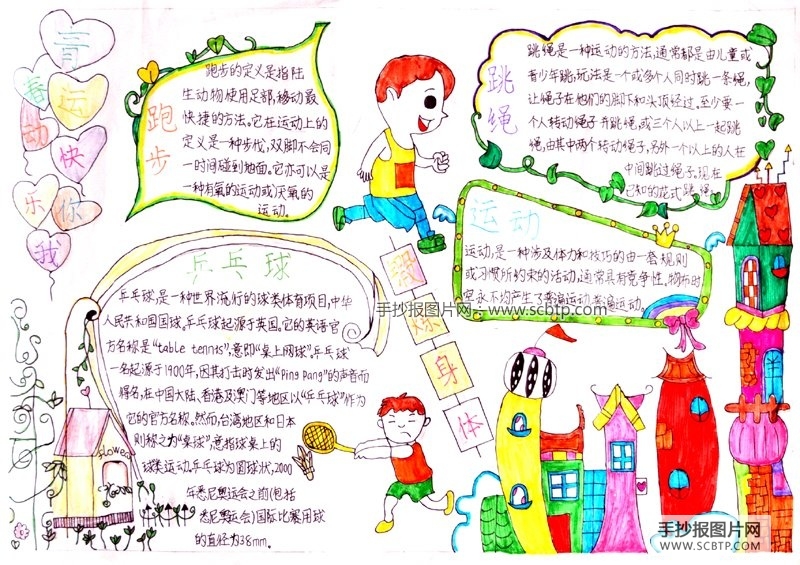 青
春运
动快
乐你
我
跑步
跑步的定义是指陆
生动物使用足部,移动最
快捷的方法。它在运动上的
定义是一种步伐,双脚不会同
一时间碰到地面。它亦可以是
一种有氧的运动或厌氧的
运动。
跳绳
跳绳是一种运动的方法,通常都是由儿童或
青少年跳,玩法是一个或多个人同时跳一条绳,
让绳子在他们的脚下和头顶经过,至少要一
个人转动绳子并跳绳,或三个人以上一起跳
绳,由其中两个转动绳子,另外一个以上的人在
中间跳过绳子,现在
已和的花式跳绳
运动
运动,是一种涉及体力和技巧的由一套规则
或习惯所约束的活动,通常具有竞争性。物布时
空永不均产生了普遍运动普遍运动。
锻
炼
身
体
乒乓球
乒乓球,是一种世界流行的球类体育项目,中华
人民共和国国球,乒乓球起源于英国,它的英语官
方名称是"table tennis",意即"桌上网球",乒乓球
一名起源于1900年,因其打击时发出"Ping Pang"的声音而
得名,在中国大陆、香港及澳门等地区以"乒乓球"作为
它的官方名称。然而,台湾地区和日本
则称之为"桌球",意指球桌上的
球类运动,乒乓球为圆球状,2000
年悉尼奥运会之前(包括
悉尼奥运会)国际比赛用球
的直径为38mm。
手抄报图片网 - www.scbtp.com
手抄报图片网
WWW.SCBTP.COM